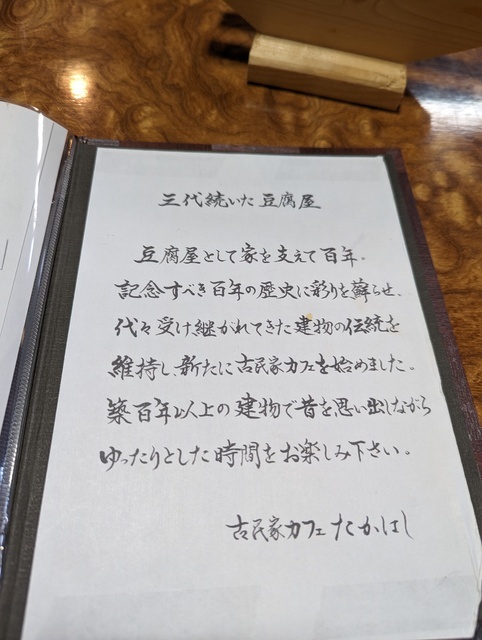 三代続いた豆腐屋
豆腐屋として家を支えて百年。
記念すべき百年の歴史に彩りを蘇らせ、
代々受け継がれてきた建物の伝統を
維持し、新たに古民家カフェを始めました。
築百年以上の建物で昔を思い出しながら
ゆったりとした時間をお楽しみ下さい。
古民家カフェたかはし